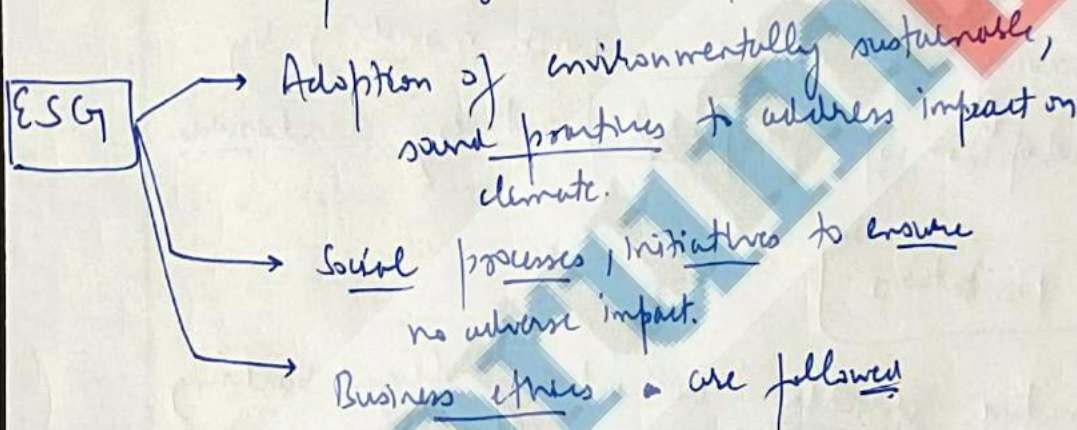 ESG
Adoption of environmentally sustainable,
sound practices to address impact on
climate.
Social processes, initiatives to ensure
no adverse impact.
Business ethics are followed